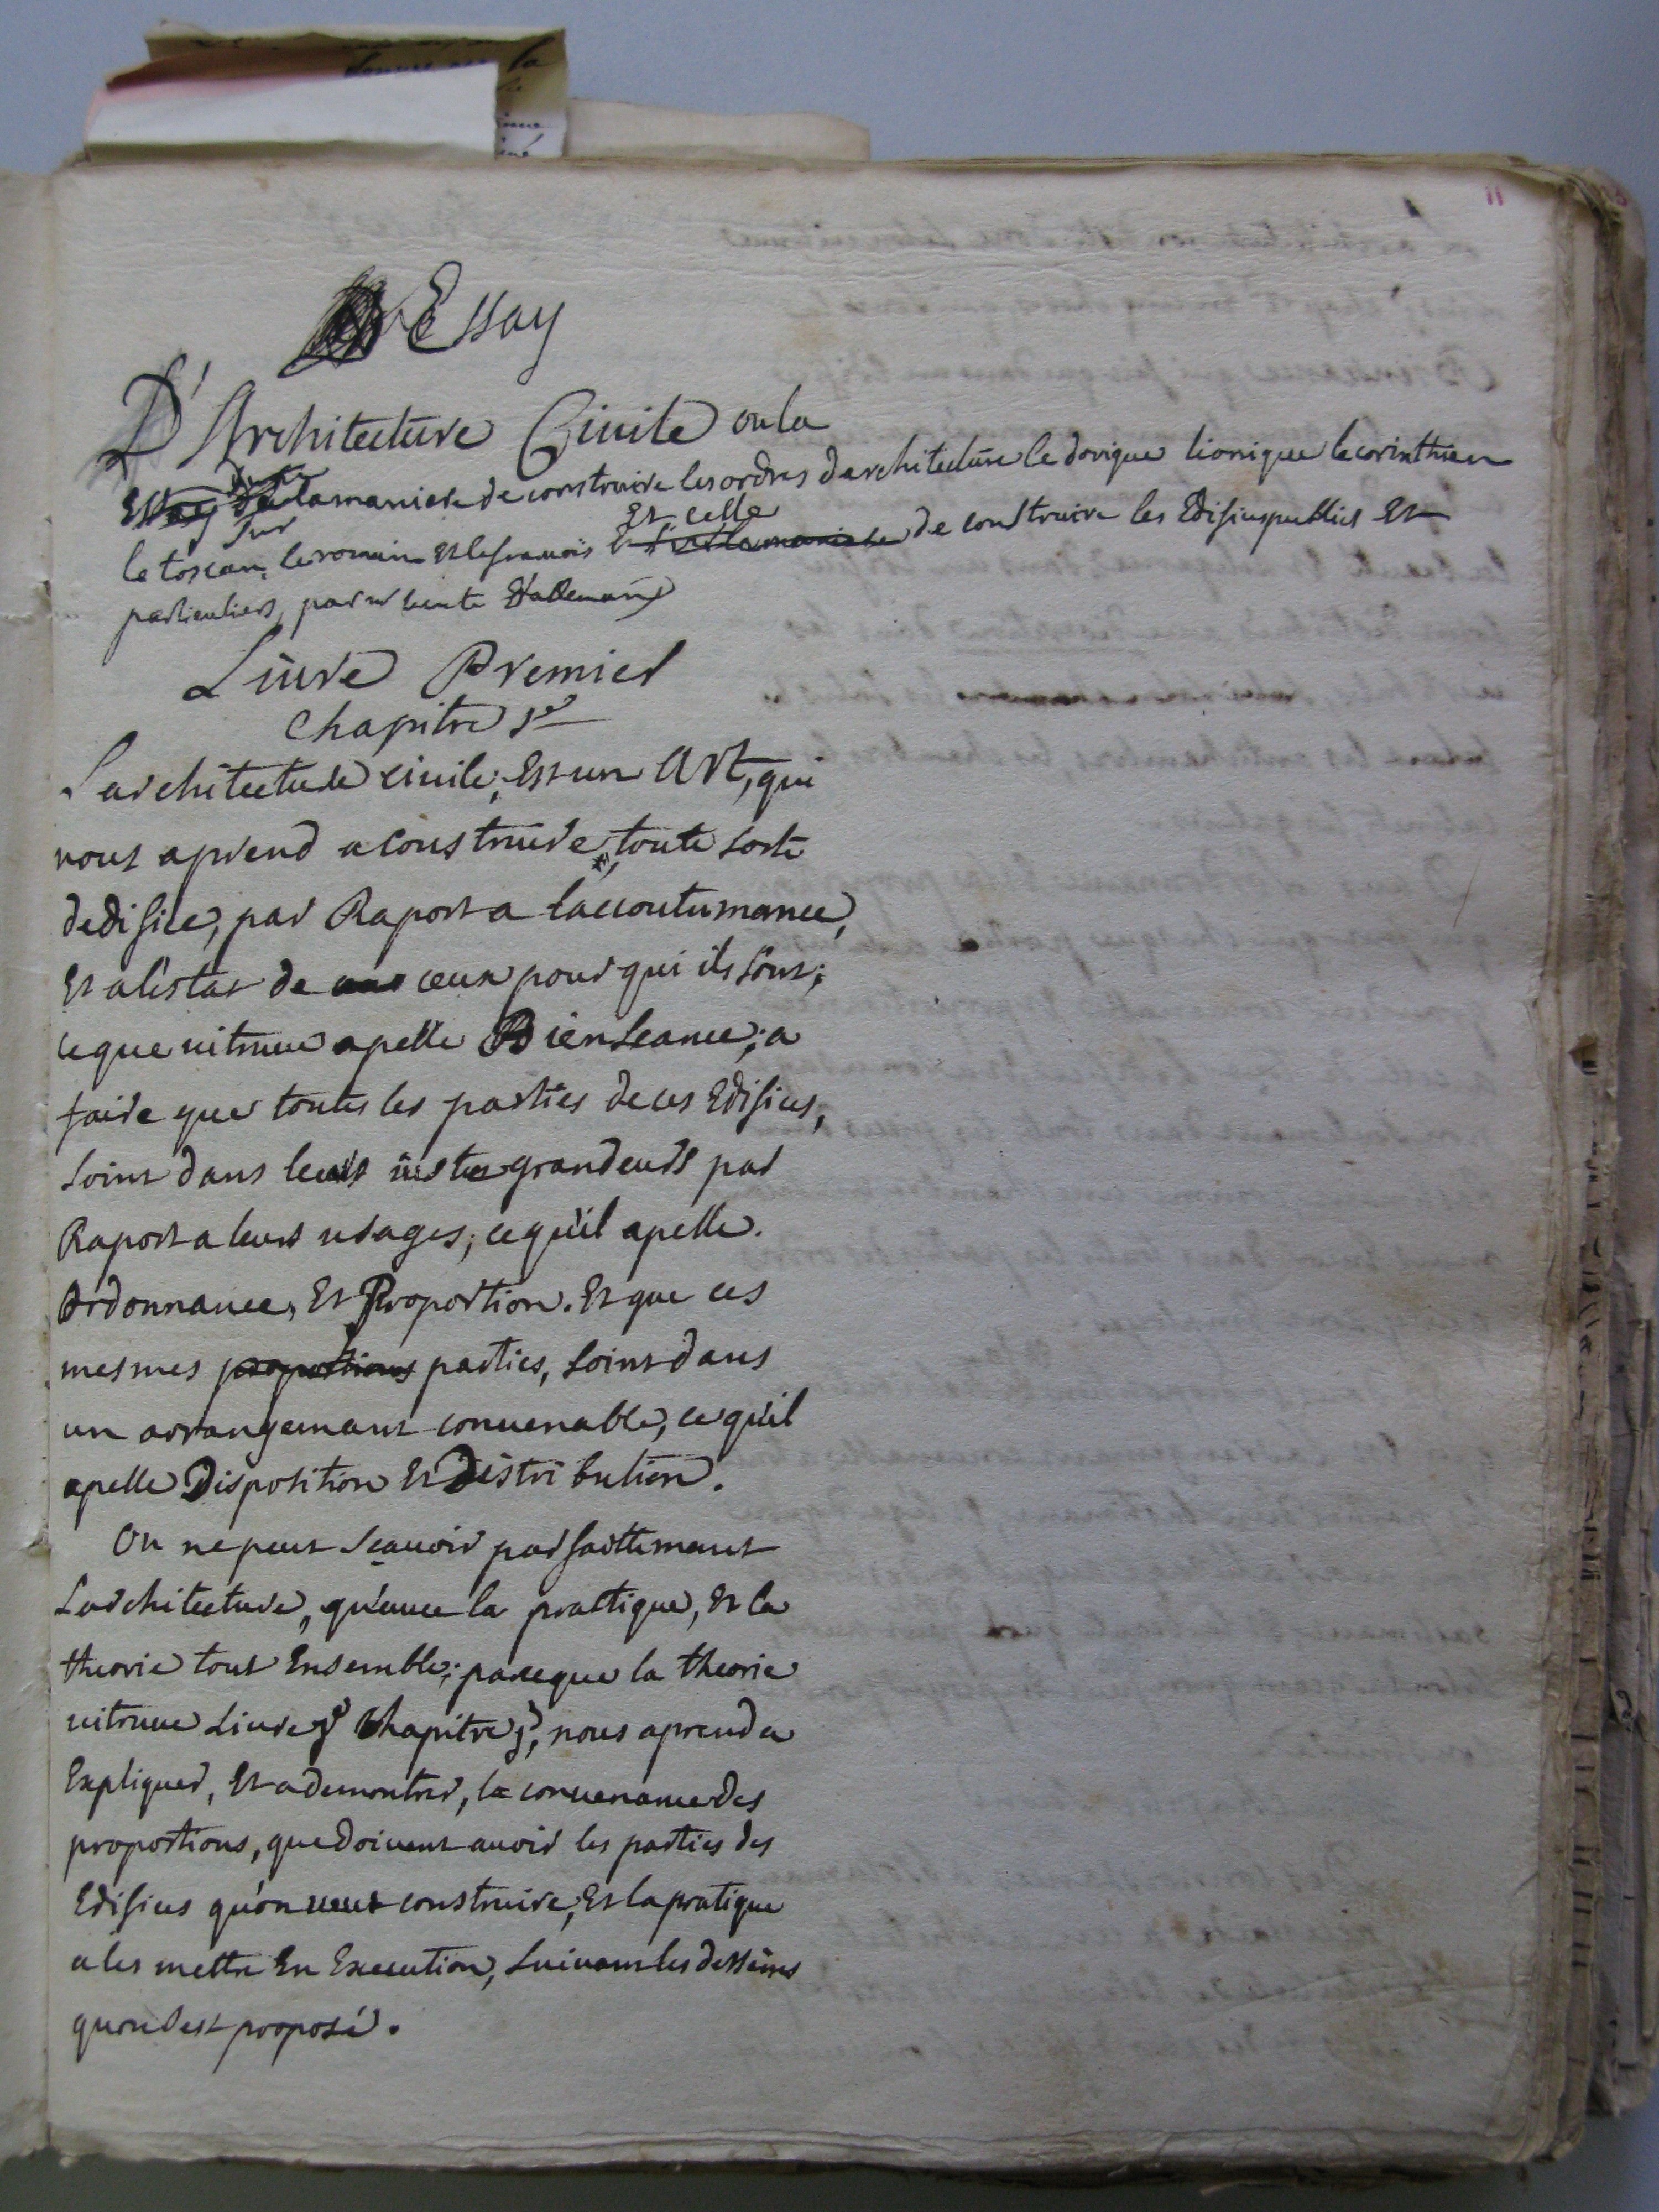 11
Essay
D'Architecture Civile ou la
Essay de la maniere de construire les ordres darchitecture le dorique lionique le corinthien
sur
Et celle
le toscan, le romain Et le francois Et sur la maniere de construire les Edifices publics Et
particuliers, par
Livre Premier
Chapitre 1er
Larchitecture civile, Est un Art, qui
nous aprend a construire, toute sorte
dedifice, par Raport a laccoutumance,
Et a lestat de ceux pour qui ils sont;
ce que vitruve apelle Bienseance; a
faire que toutes les parties de ces Edifices,
soint dans leurs justes grandeurs par
Raport a leurs usages, ce qu'il apelle.
Ordonnance, Et Proportion. Et que ces
mesmes proportions parties, soint dans
un arrangemant convenable, ce qu'il
apelle Disposition Et Distribution.
On ne peut sçavoir parfaittemant
Larchitecture, qu'avec la prattique, Et la
theorie tout Ensemble; parceque la theorie
vitruve Livre 1er Chapitre 1er, nous aprend a
Expliquer, Et a demontrer, la convenance des
proportions, que doivent avoir les parties des
Edifices qu'on veut construire, Et la pratique
a les mettre En Execution, suivant les desseins
quon sest proposé.